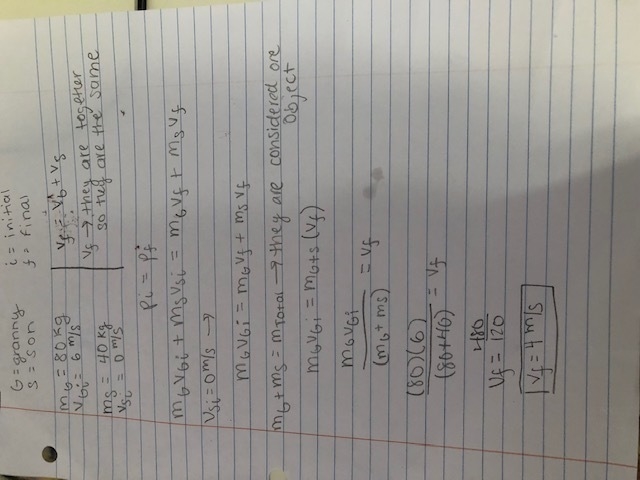 G = granny i = initial
S = son f = final
mG = 80 kg
vGi = 6 m/s
ms = 40 kg
vsi = 0 m/s
vf = vG + vs
vf → they are together
so they are the same
Pi = Pf
mGvGi + msvsi = mGvf + msvf
vsi = 0 m/s →
mGvGi = mGvf + msvf
mG + ms = mTotal → they are considered one
object
mGvGi = mG+s (vf)
mGvGi
(mG + ms) = vf
(80)(6)
(80+40) = vf
480
vf = 120
vf = 4 m/s